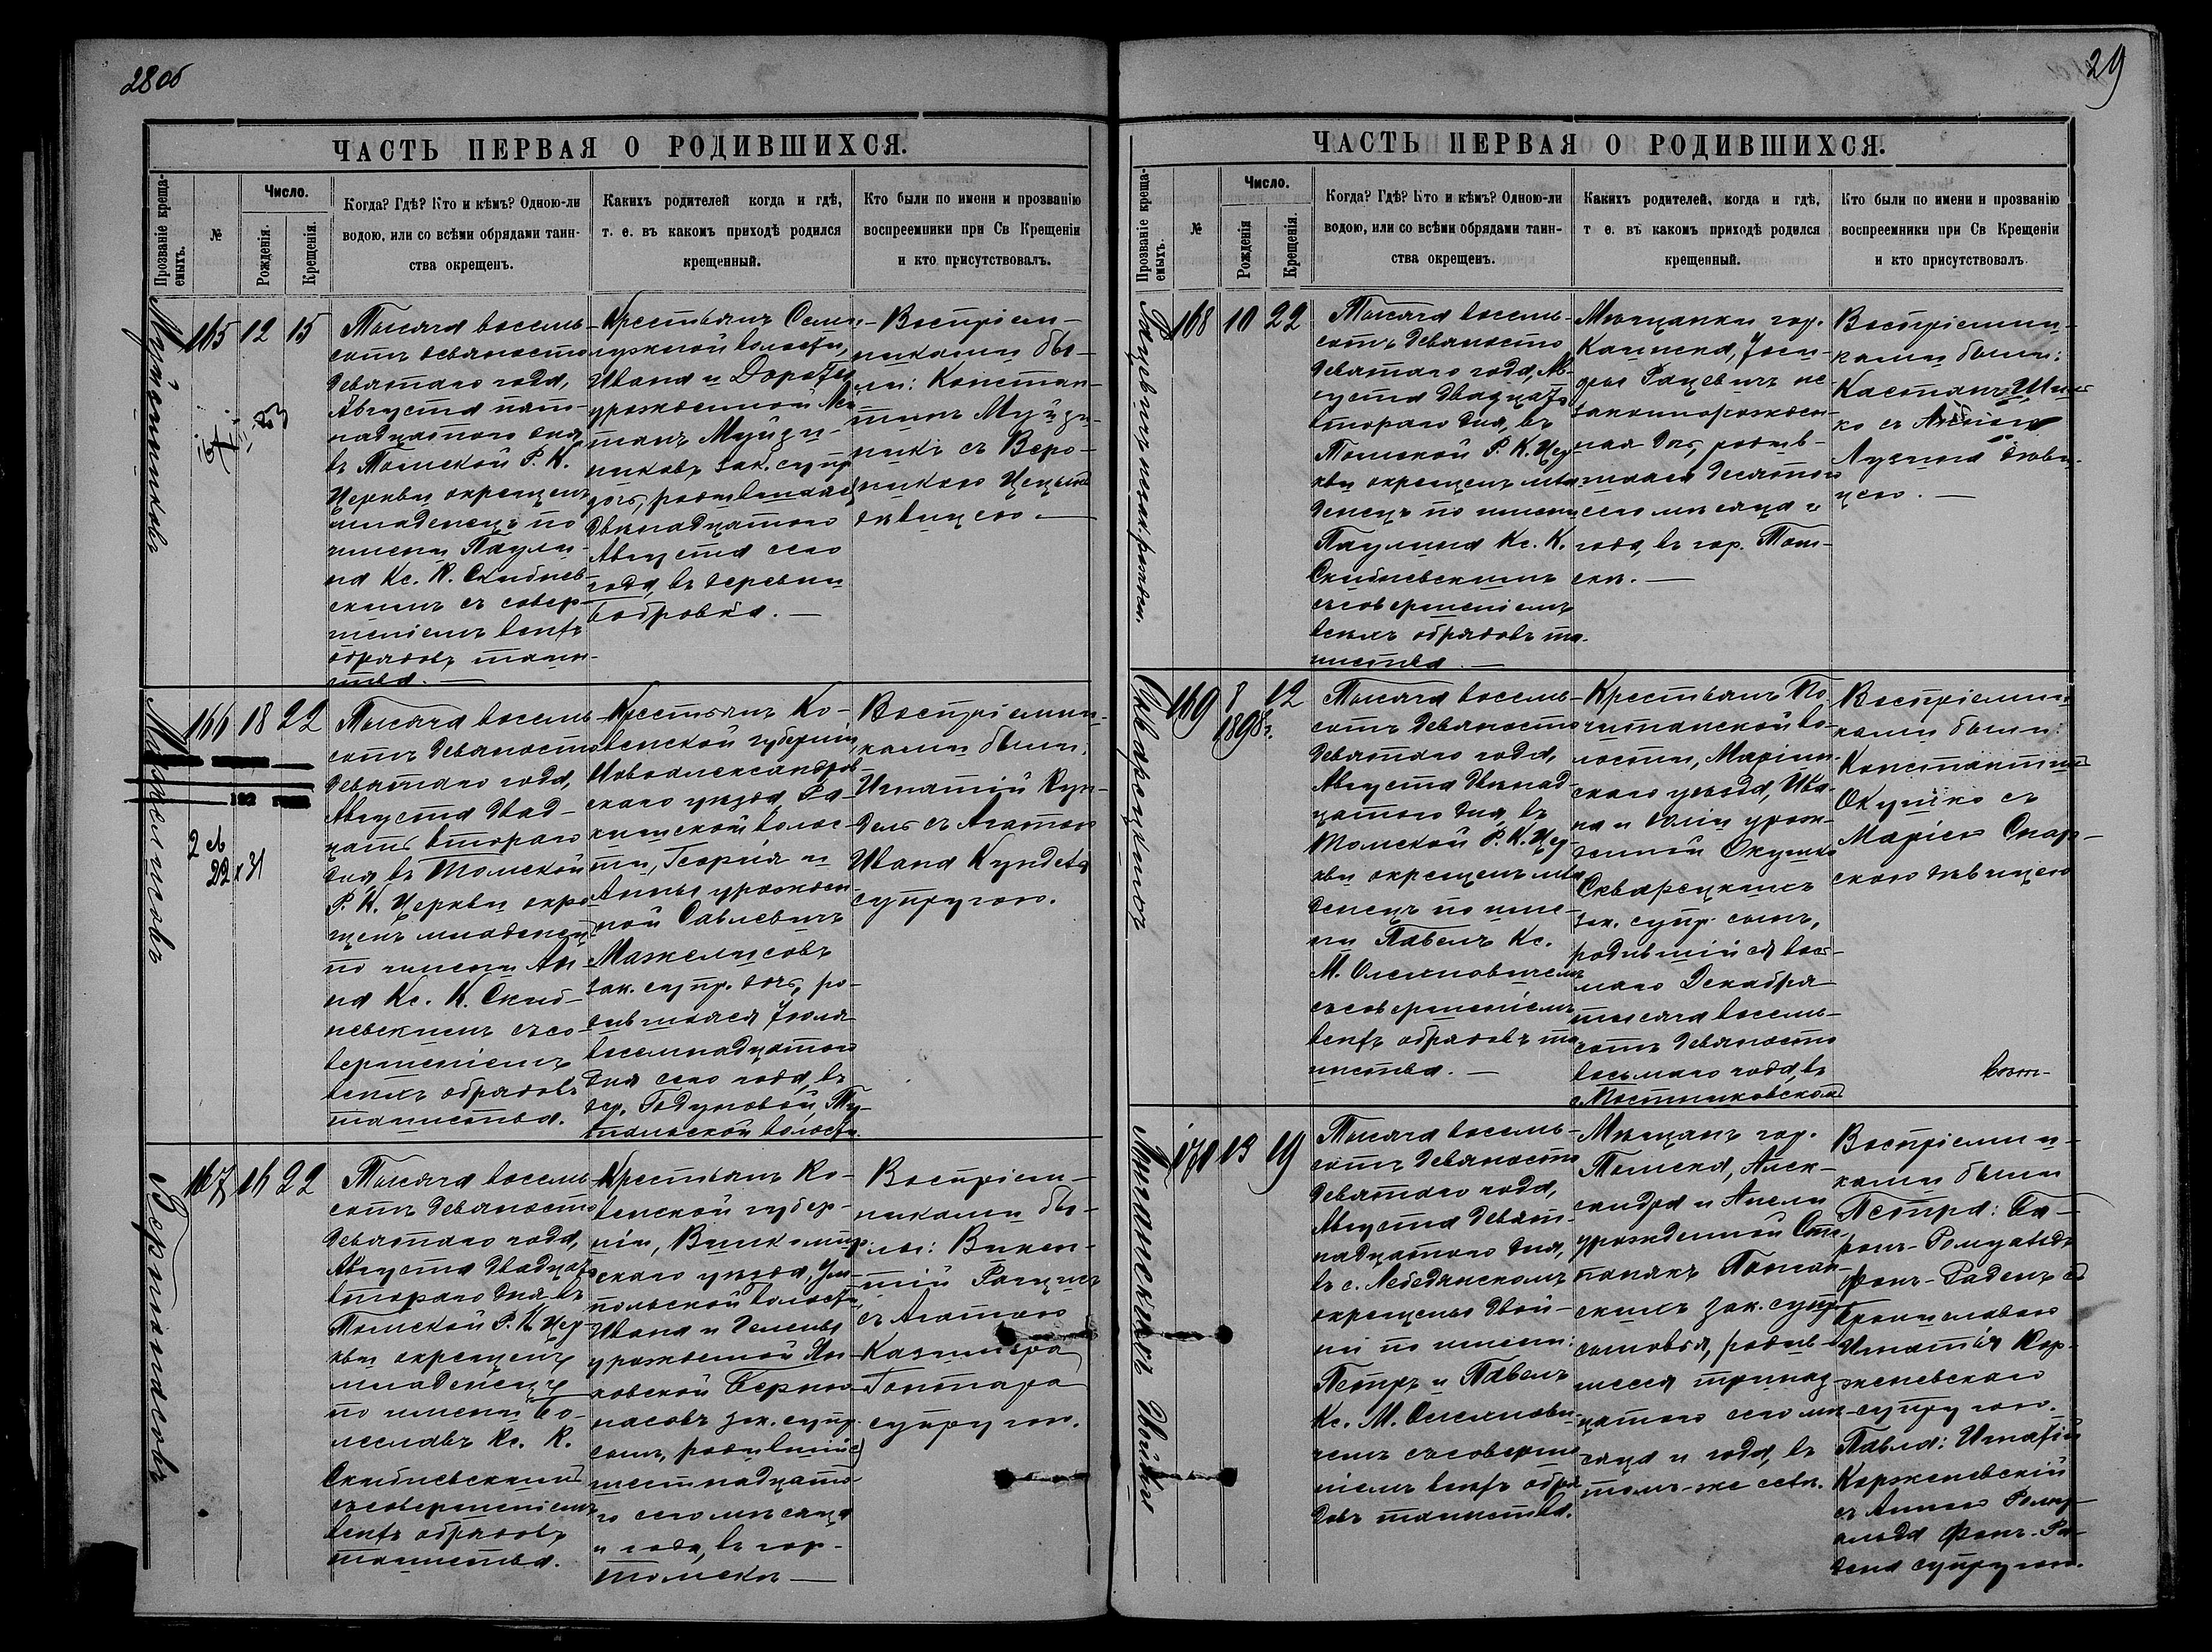 28 об
ЧАСТЬ ПЕРВАЯ О РОДИВШИХСЯ.
Прозваніе креща-
емыхъ.
№
Число.
Рожденія.
Крещенія.
Когда? Гдѣ? Кто и кѣмъ? Одною-ли
водою, или со всѣми обрядами таин-
ства окрещенъ.
Какихъ родителей когда и гдѣ,
т. е. въ какомъ приходѣ родился
крещенный.
Кто были по имени и прозванію
воспреемники при Св Крещеніи
и кто присутствовалъ.
165 12 15
Тысяча восемь-
сотъ девяносто
девятаго года,
Августа пят-
надцатого дня
въ Томской Р. К.
Церкви окрещенъ
младенецъ по
имени Паули-
на Кс. К. Скибнев-
скимъ съ совер-
шеніемъ всѣхъ
обрядовъ таин-
ства. —
Крестьянъ Семи-
лужной волости,
Ивана и Доротеи
урожденной
Муйзи-
никовъ зак. супр.
дочь, родившаяся
двѣнадцатого
Августа сего
года, въ деревни
Бобровка. —
Воспріем-
никами бы-
ли: Констан-
тинъ Муйзи-
никъ съ Веро-
никою
дѣвицею. —
166 18 22
Мажелисовъ
192 года
22 x 31
Тысяча восемь
сотъ девяносто
девятаго года,
Августа двад-
цать второго
дня въ Томской
Р. К. Церкви окре-
щенъ младенецъ
по имени Ан-
на Кс. К. Скиб-
невскимъ съ со-
вершеніемъ
всѣхъ обрядовъ
таинства.
Крестьянъ Ко-
венской губерніи,
Новоалександров-
скаго уѣзда, Ра-
кишской волос-
ти, Георгія и
Анны урожден-
ной Савлевичъ
Мажелисовъ
зак. супр. дочь, ро-
дившаяся Іюля
восемнадцатого
дня сего года, въ
дер. Годуновой, Ту-
тальской волости.
Воспріемни-
ками были:
Игнатій Кун-
дель съ Агатою
Ивана Кунделя
супругою.
167 16 22
Бернатасовъ
Тысяча восемь
сотъ девяносто
девятаго года,
Августа двадцать
второго дня въ
Томской Р. К. Цер-
кви окрещенъ
младенецъ
по имени Бо-
леславъ Кс. К.
Скибневскимъ
съ совершеніемъ
всѣхъ обрядовъ
таинства.
Крестьянъ Ко-
венской губер-
ніи, Вилкомир-
скаго уѣзда, Уш-
польской волости,
Ивана и Елены
урожденной Ян-
ковской Берна-
тасовъ зак. супр.
сынъ, родившійся
шестнадцато-
го сего мѣсяца
и года, въ гор.
Томскѣ —
Воспріем-
никами бы-
ли: Викен-
тій
съ Агатою
Казимира
Гонтара
супругою.
29
ЧАСТЬ ПЕРВАЯ О РОДИВШИХСЯ.
Прозваніе креща-
емыхъ.
№
Число.
Рожденія
Крещенія.
Когда? Гдѣ? Кто и кѣмъ? Одною-ли
водою, или со всѣми обрядами таин-
ства окрещенъ.
Какихъ родителей, когда и гдѣ,
т е. въ какомъ приходѣ родился
крещенный.
Кто были по имени и прозванію
воспреемники при Св Крещеніи
и кто присутствовалъ.
168 10 22
Рацевичъ незак. рожден.
Тысяча восемь-
сотъ девяносто
девятаго года, Ав-
густа двадцать
второго дня, въ
Томской Р. К. Цер-
кви окрещенъ мла-
денецъ по имени
Паулина Кс. К.
Скибневскимъ
съ совершеніемъ
всѣхъ обрядовъ та-
инства. —
Мѣщанки гор.
Каинска,
Рацевичъ не
законнорожден-
ная дочь, родив-
шаяся десятого
сего мѣсяца и
года, въ гор. Том-
скѣ. —
Воспріемни-
ками были:
дѣви-
цею. —
169 8 12
1898 г.
Скварецкихъ
Тысяча восемь-
сотъ девяносто
девятаго года,
Августа двѣнад-
цатого дня, въ
Томской Р. К. Цер-
кви окрещенъ мла-
денецъ по име-
ни Павелъ Кс.
М. Олехновичемъ
съ совершеніемъ
всѣхъ обрядовъ та-
инства. —
Крестьянъ По-
читанской во-
лости, Маріин-
скаго уѣзда, Ива-
на и Юліи урож-
денной Окушко
Скварецкихъ
зак. супр. сынъ,
родившійся вось-
маго Декабря
тысяча восемь-
сотъ девяносто
восьмаго года, въ
с. Постниковскомъ
Воспріемни-
ками были:
Константинъ
Окушко съ
Маріею Сквар-
скою дѣвицею
170 13 19
Двойни
Тысяча восемь-
сотъ девяносто
девятаго года,
Августа девят-
надцатого дня,
въ с. Лебедянскомъ
окрещены двой-
ни по имени:
Петръ и Павелъ
Кс. М. Олехнови-
чемъ съ соверше-
ніемъ всѣхъ обря-
довъ таинства.
Мѣщанъ гор.
Томска, Алек-
сандра и Анели
урожденной Сте-
панякъ
скихъ зак. супр.
сыновья, родив-
шіеся тринад-
цатого сего мѣ-
сяца и года, въ
томъ-же селѣ.
Воспріемни-
ками были
Петра: Ба-
ронъ-Ромуальдъ
фонъ-Раденъ съ
Брониславою
Игнатія Кор-
женевскаго
супругою.
Павла: Игнатій
Корженевскій
съ Анною Рому-
альда фонъ-Ра-
дена супругою.